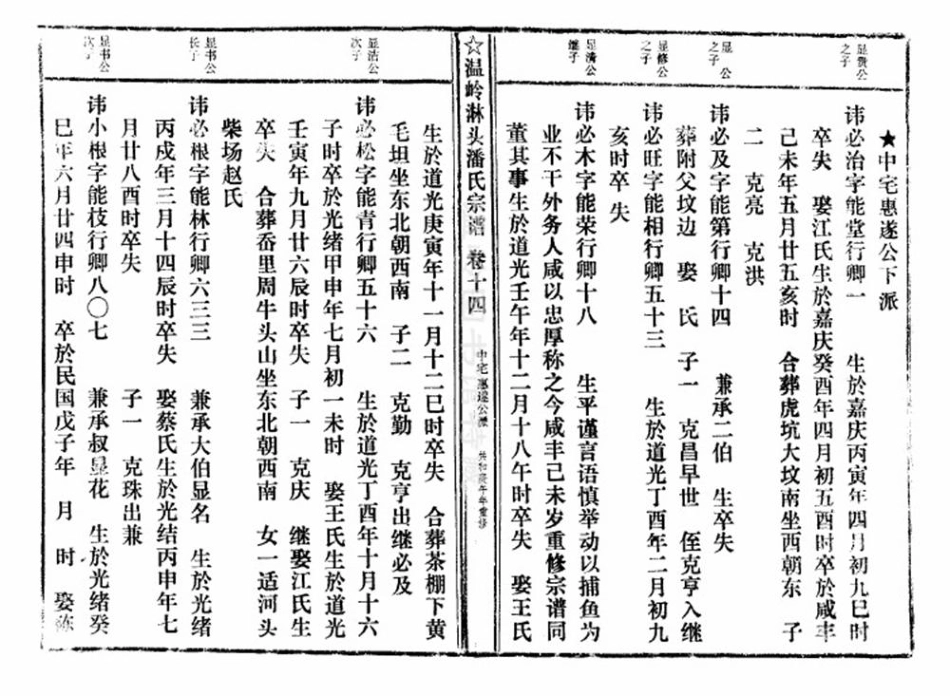 ★中宅惠遂公下派
之子
讳必治字能堂行卿一 生於嘉庆丙寅年四月初九巳时
卒失 娶江氏生於嘉庆癸酉年四月初五酉时卒於咸丰
己未年五月廿五亥时 合葬虎坑大坟南坐西朝东 子
二 克亮 克洪
显 公
之子
讳必及字能第行卿十四 兼承二伯 生卒失
葬附父坟边 娶 氏 子一 克昌早世 侄克亨入继
显修公
之子
讳必旺字能相行卿五十三 生於道光丁酉年二月初九
亥时卒 失
显清公
继子
讳必木字能荣行卿十八 生平谨言语慎举动以捕鱼为
业不干外务人咸以忠厚称之今咸丰己未岁重修宗谱同
董其事生於道光壬午年十二月十八午时卒失 娶王氏
☆温岭淋头潘氏宗谱 卷十四
中宅惠遂公派
共和庚午年重修
生於道光庚寅年十一月十二巳时卒失 合葬茶棚下黄
毛坦坐东北朝西南 子二 克勤 克亨出继必及
显洁公
次子
讳必松字能青行卿五十六 生於道光丁酉年十月十六
子时卒於光绪甲申年七月初一未时 娶王氏生於道光
壬寅年九月廿六辰时卒失 子一 克庆 继娶江氏生
卒失 合葬岙里周牛头山坐东北朝西南 女一适河头
柴场赵氏
显书公
长子
讳必根字能林行卿六三三 兼承大伯显名 生於光绪
丙戌年三月十四辰时卒失 娶蔡氏生於光结丙申年七
月廿八酉时卒失 子一 克珠出兼
显书公
次子
讳小根字能枝行卿八〇七 兼承叔显花 生於光绪癸
巳年六月廿四申时 卒於民国戊子年 月 时 娶陈